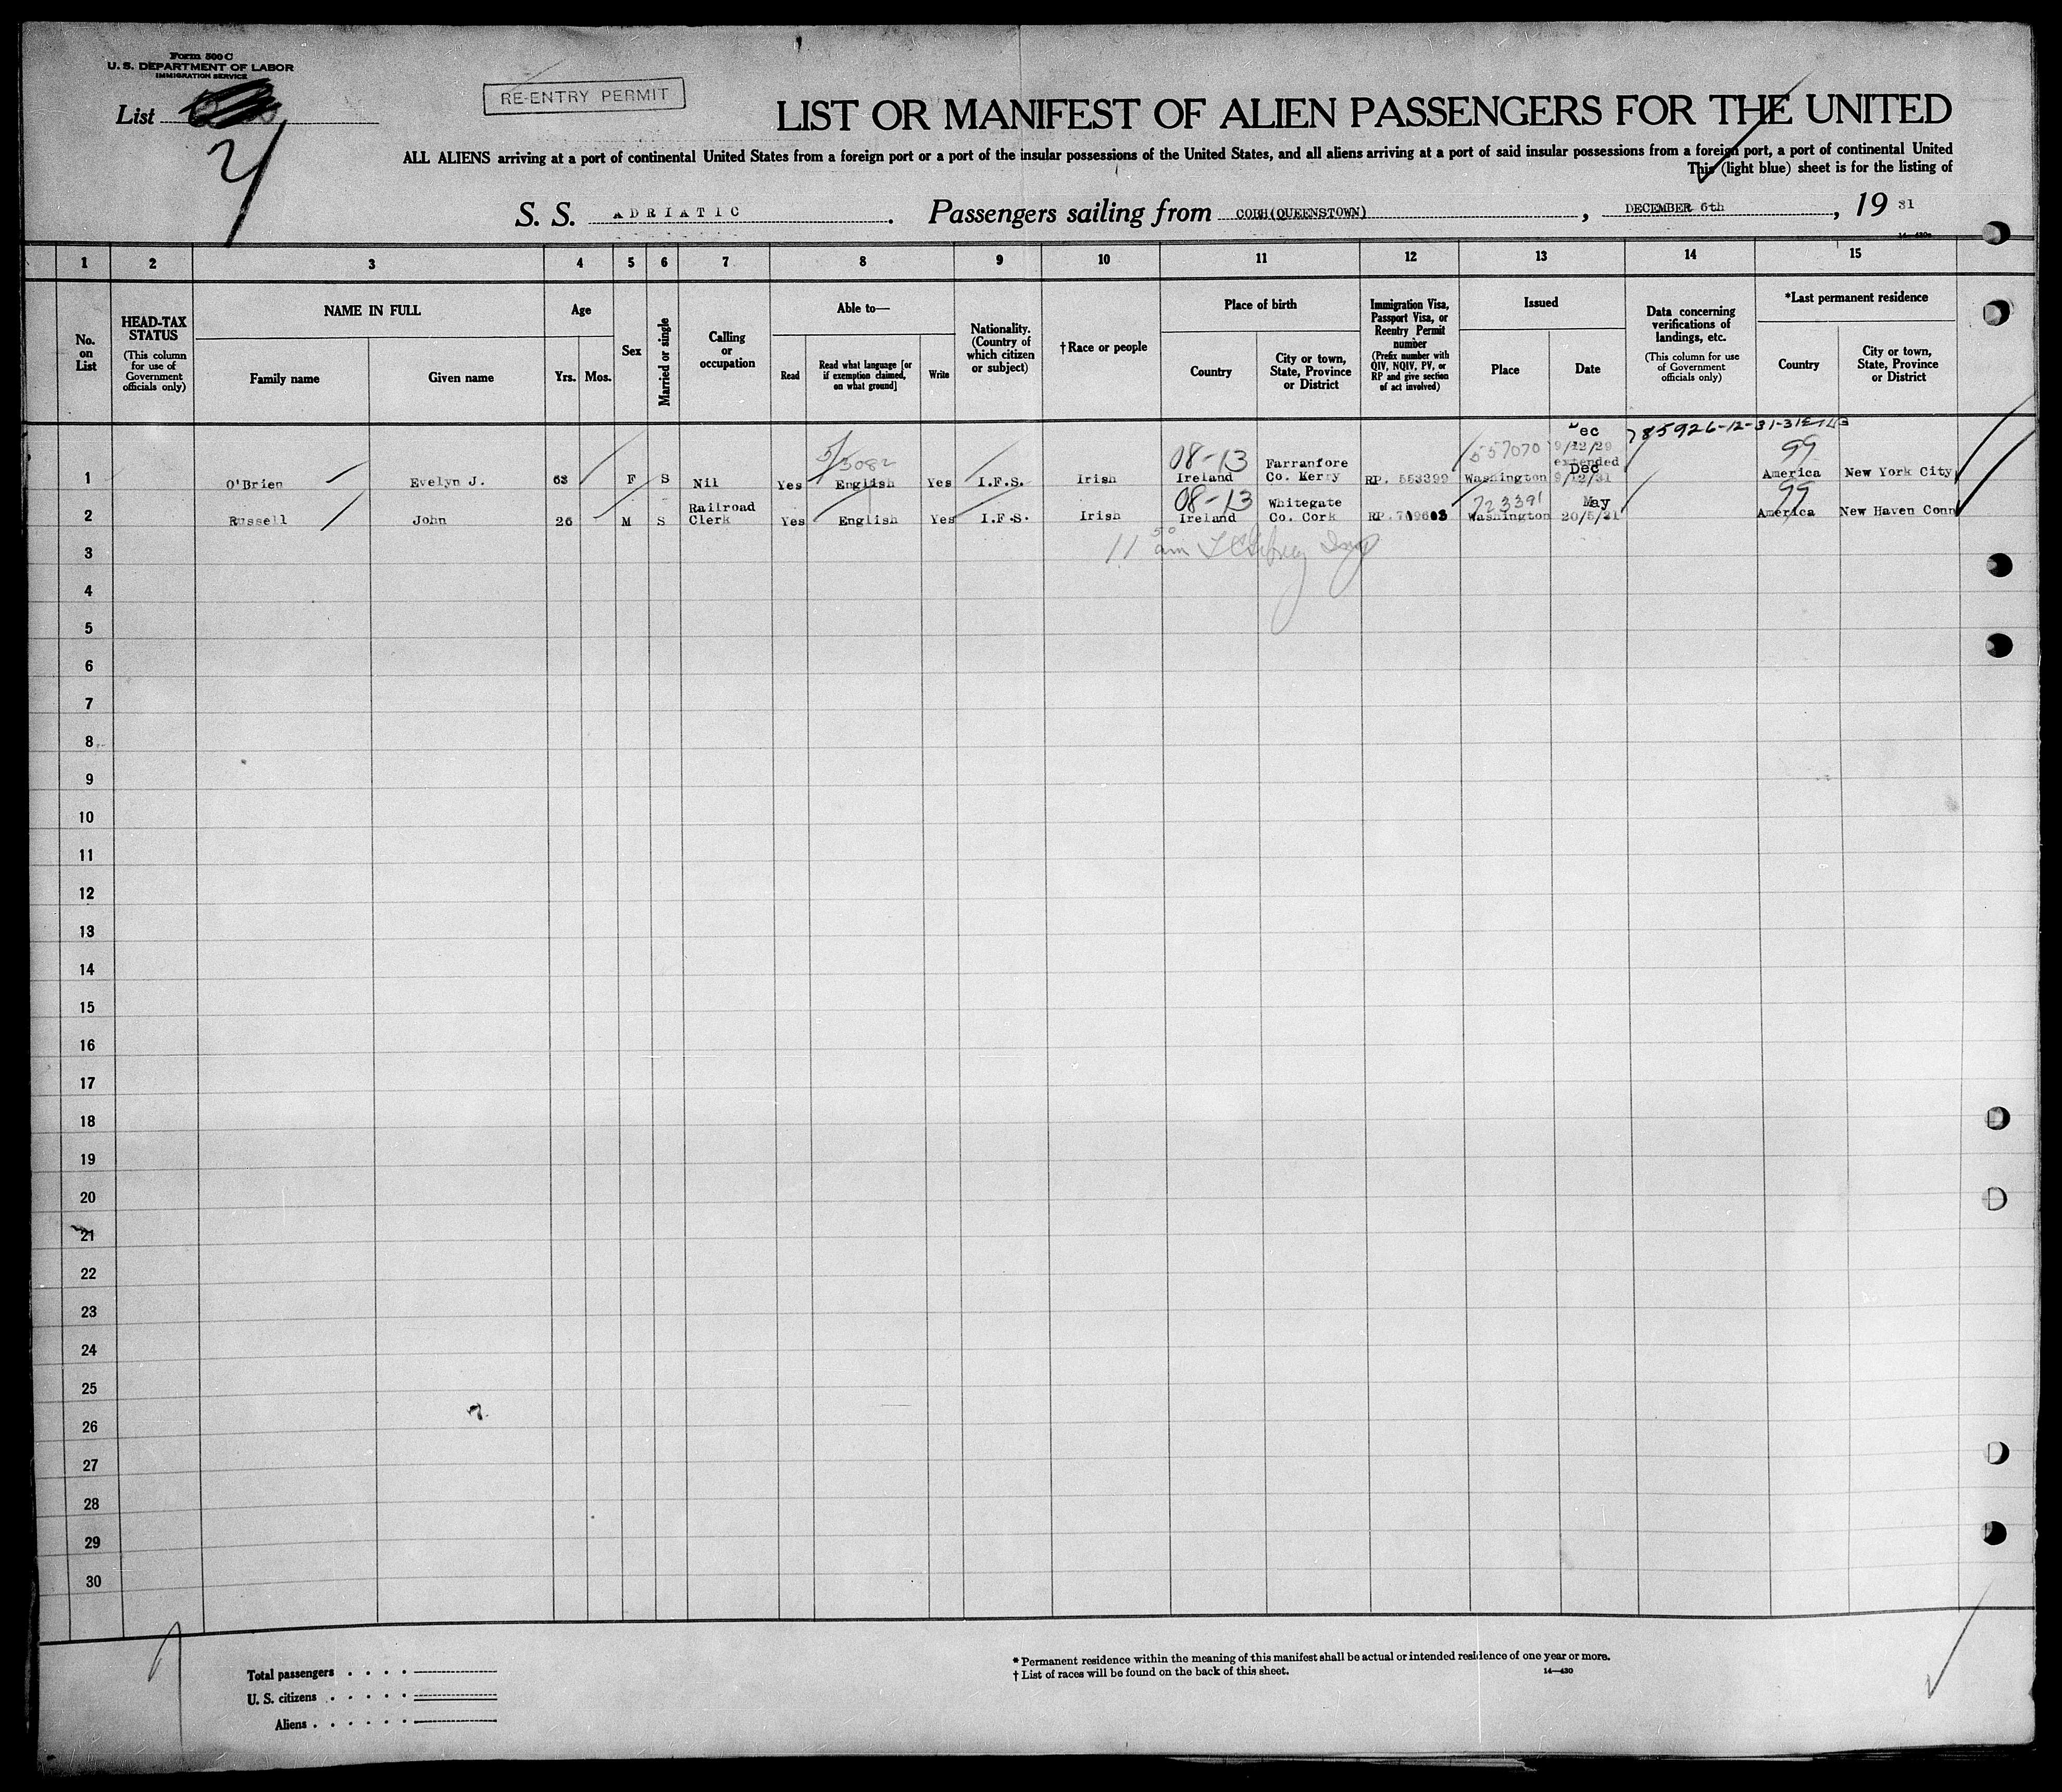 Form 500 C
U. S. DEPARTMENT OF LABOR
IMMIGRATION SERVICE
List
RE-ENTRY PERMIT
LIST OR MANIFEST OF ALIEN PASSENGERS FOR THE UNITED
ALL ALIENS arriving at a port of continental United States from a foreign port or a port of the insular possessions of the United States, and all aliens arriving at a port of said insular possessions from a foreign port, a port of continental United
This (light blue) sheet is for the listing of
S. S. ADRIATIC . Passengers sailing from COBH(QUEENSTOWN) , DECEMBER 6th , 19 31
1 2 3 4 5 6 7 8 9 10 11 12 13 14 15
No. on List
HEAD-TAX STATUS
(This column for use of Government officials only)
NAME IN FULL
Family name
Given name
Age
Yrs. Mos.
Sex
Married or single
Calling or occupation
Able to—
Read
Read what language [or if exemption claimed, on what ground]
Write
Nationality. (Country of which citizen or subject)
† Race or people
Place of birth
Country
City or town, State, Province or District
Immigration Visa, Passport Visa, or Reentry Permit number
(Prefix number with QIV, NQIV, PV, or RP and give section of act involved)
Issued
Place
Date
Data concerning verifications of landings, etc.
(This column for use of Government officials only)
*Last permanent residence
Country
City or town, State, Province or District
08-13 557070 9/12/29 99
extended
1 O'Brien Evelyn J. 63 F S Nil Yes English Yes I.F.S. Irish Ireland Farranfore Co. Kerry RP. 553399 Washington Dec 9/12/31 America New York City
08-13 723391 99
2 Russell John 26 M S Railroad Clerk Yes English Yes I.F.S. Irish Ireland Whitegate Co. Cork RP. Washington May 20/5/31 America New Haven Conn
3
4
5
6
7
8
9
10
11
12
13
14
15
16
17
18
19
20
21
22
23
24
25
26
27
28
29
30
Total passengers
U. S. citizens
Aliens
* Permanent residence within the meaning of this manifest shall be actual or intended residence of one year or more.
† List of races will be found on the back of this sheet.
14—430